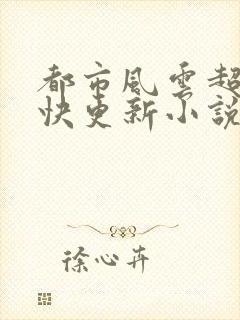 都市風雲超
快更新小說
徐心卉